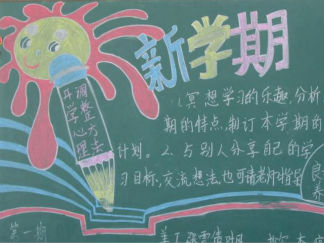 新学期
开学心理
调整方法
1.冥想学习的乐趣,分析
期的特点,制订本学期的
计划。2.与别人分享自己的学
习目标,交流想法,也可请老师指导
良
养
第一期
美工